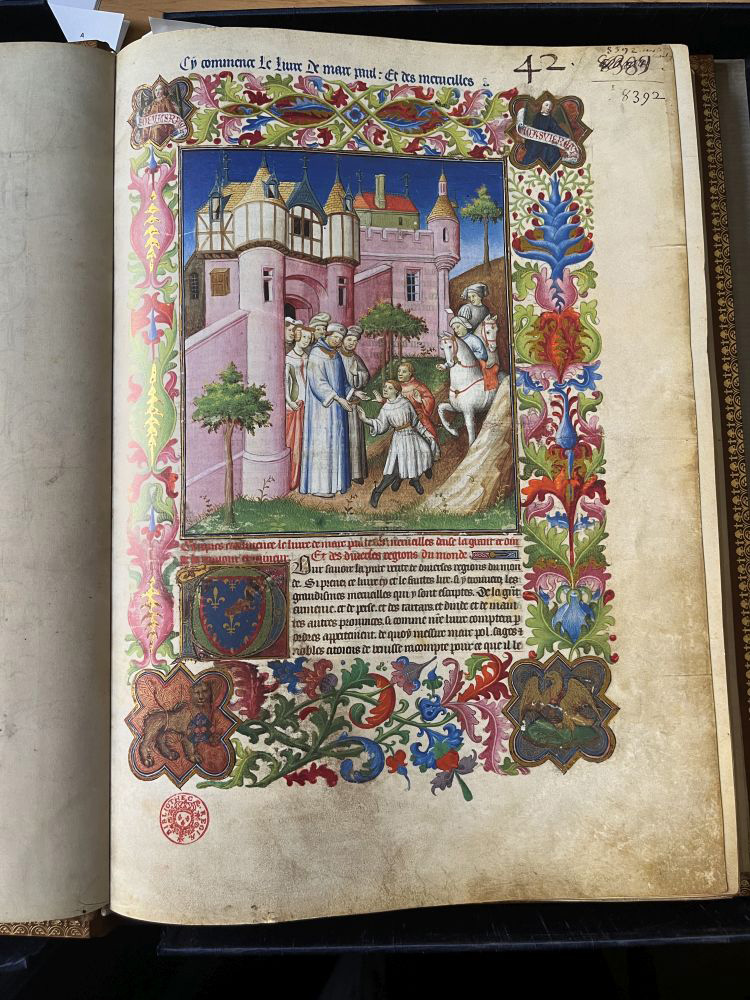 4
Cy commence Le Liure De marc paul: Et des merueilles
42.
8392
8392
commence le liure de marc paul
Et des diuerses regions du monde
Pour sauoir la pure verite de diuerses regions du mon
de. Si prenez ce liure cy et le faites lire. si y trouuerez les
grandismes merueilles qui y sont escriptes. De la grāt
ermenie. et de perse. et des tartars. et dinde. et de maint
tes autres prouinces. si comme nre liure comptera p
ordres appertement. de quoy messire marc pol. sages
nobles citoiens de venisse racompte pour ce que il le
BIBLIOTHECÆ REGIÆ